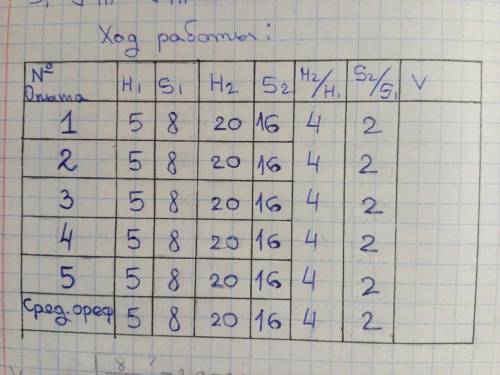 Ход работы:
№ Опыта H₁ S₁ H₂ S₂ H₂/H₁ S₂/S₁ V
1 5 8 20 16 4 2
2 5 8 20 16 4 2
3 5 8 20 16 4 2
4 5 8 20 16 4 2
5 5 8 20 16 4 2
5 8 20 16 4 2